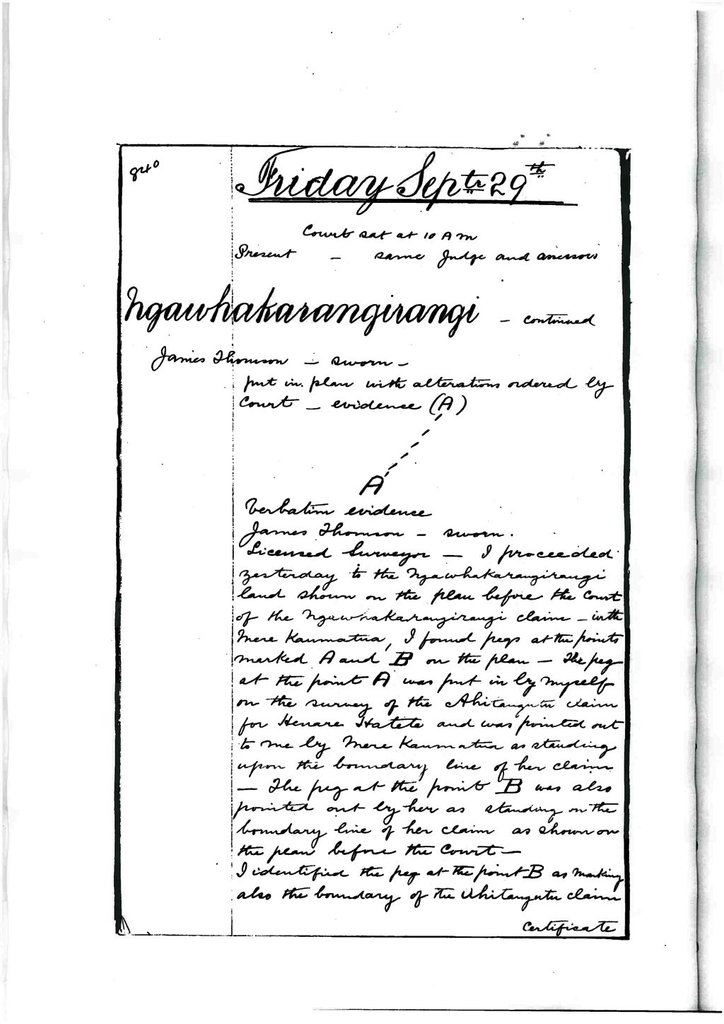 840
Friday Septr 29th
Court sat at 10 A m
Present — same Judge and assessors
Ngawhakarangirangi — continued
James Thomson — sworn —
put in plan with alterations ordered by
Court — evidence (A)
A
Verbatim evidence
James Thomson — sworn.
Licensed Surveyor — I proceeded
yesterday to the Ngawhakarangirangi
land shown on the plan before the Court
of the Ngawhakarangirangi claim — with
Mere Kaumatua, I found pegs at the points
marked A and B on the plan — The peg
at the point A was put in by myself
on the survey of the claim
for Henare Hatete and was pointed out
to me by Mere Kaumatua as standing
upon the boundary line of her claim
— The peg at the point B was also
pointed out by her as standing on the
boundary line of her claim as shown on
the plan before the Court —
I identified the peg at the point B as marking
also the boundary of the claim
Certificate